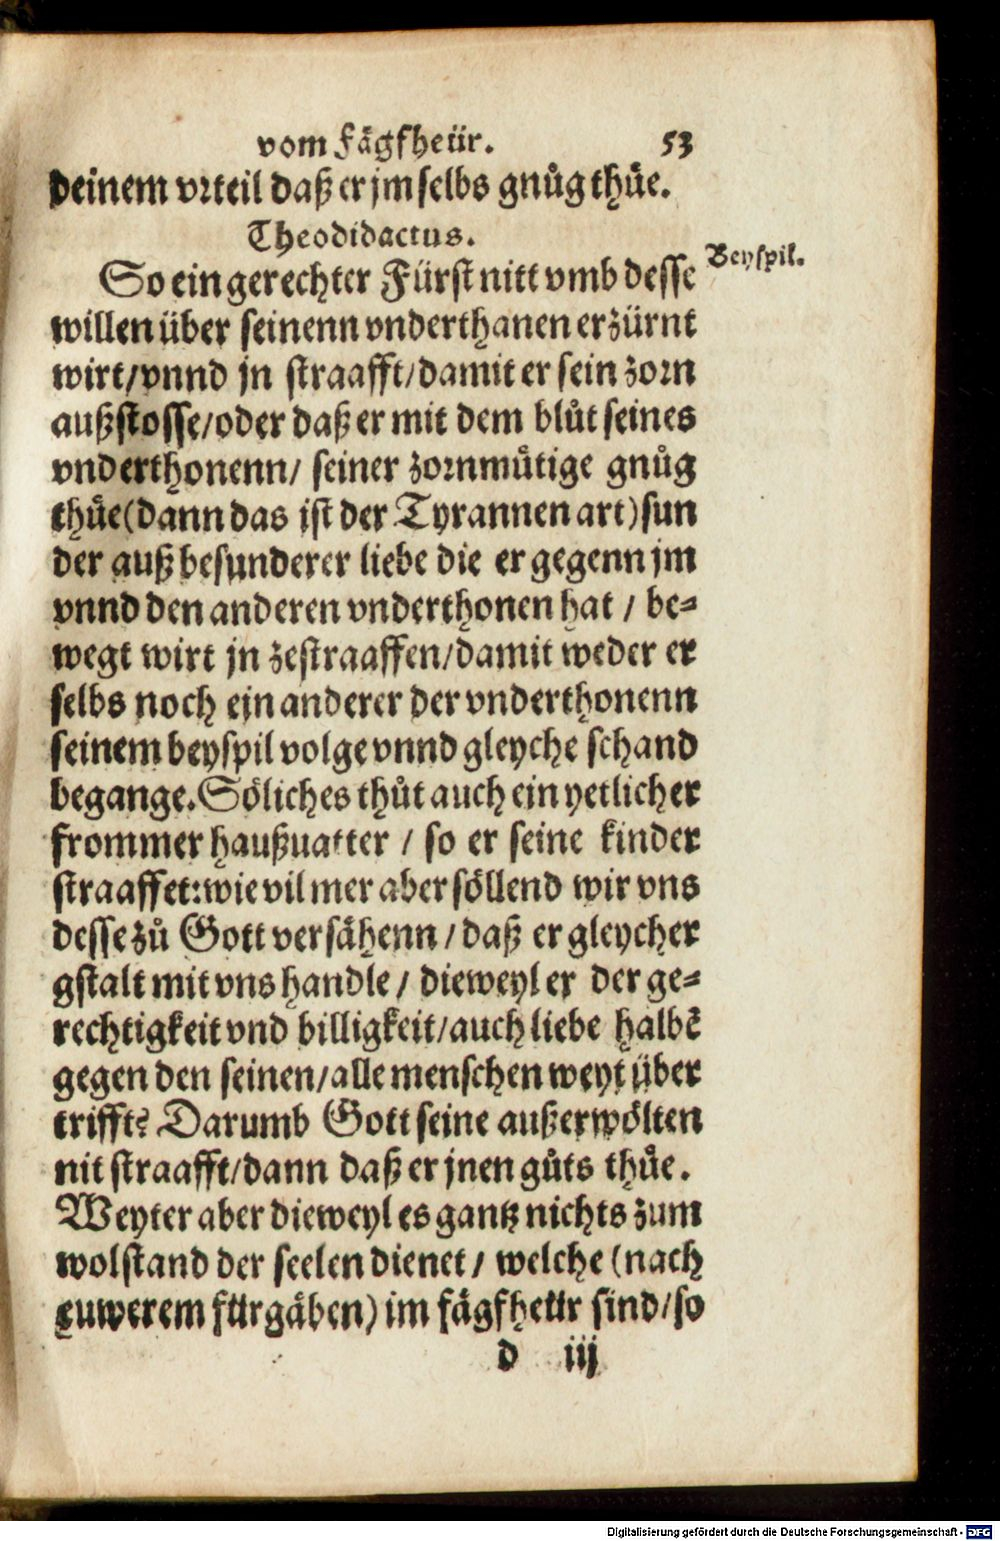 vom Fägfheür. 53
deinem vrteil daß er jm selbs gnůg thüe.
Theodidactus.
Beyspil.
So ein gerechter Fürst nitt vmb desse
willen über seinenn vnderthanen erzürnt
wirt/vnnd jn straafft/damit er sein zorn
außstosse/oder daß er mit dem blůt seines
vnderthonenn/ seiner zornmütige gnůg
thüe(dann das ist der Tyrannen art)sun
der auß besunderer liebe die er gegenn jm
vnnd den anderen vnderthonen hat / be⸗
wegt wirt jn zestraaffen/damit weder er
selbs noch ein anderer der vnderthonenn
seinem beyspil volge vnnd gleyche schand
begange. Söliches thůt auch ein yetlicher
frommer haußuatter / so er seine kinder
straaffet: wie vil mer aber söllend wir vns
desse zů Gott versähenn / daß er gleycher
gstalt mit vns handle / dieweyl er der ge⸗
rechtigkeit vnd billigkeit/auch liebe halbẽ
gegen den seinen/alle menschen weyt über
trifft? Darumb Gott seine außerwölten
nit straafft/dann daß er jnen gůts thüe.
Weyter aber dieweyl es gantz nichts zum
wolstand der seelen dienet / welche (nach
euwerem fürgäben) im fägfheür sind/so
d iij
Digitalisierung gefördert durch die Deutsche Forschungsgemeinschaft - DFG